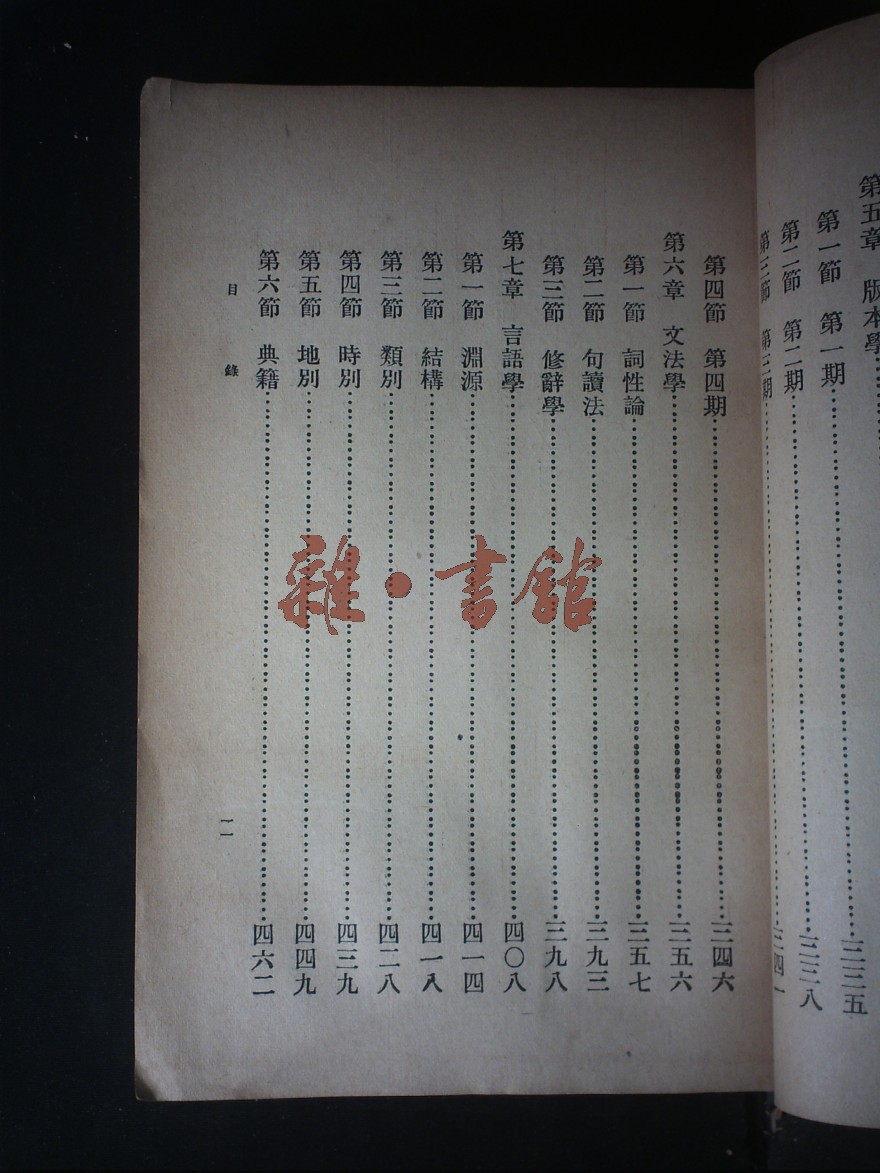 第五章 版本學……三三五
第一節 第一期……三三八
第二節 第二期
第三節 第三期……三四一
第四節 第四期……三四六
第六章 文法學……三五六
第一節 詞性論……三五七
第二節 句讀法……三九三
第三節 修辭學……三九八
第七章 言語學……四〇八
第一節 淵源……四一四
第二節 結構……四一八
第三節 類別……四二八
第四節 時別……四三九
第五節 地別……四四九
第六節 典籍……四六二
目錄
一一
雜·書館